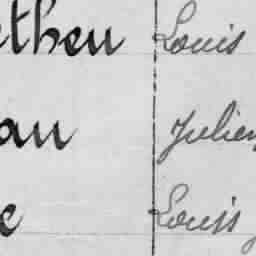 etheu Louis
au Julien
e Louis